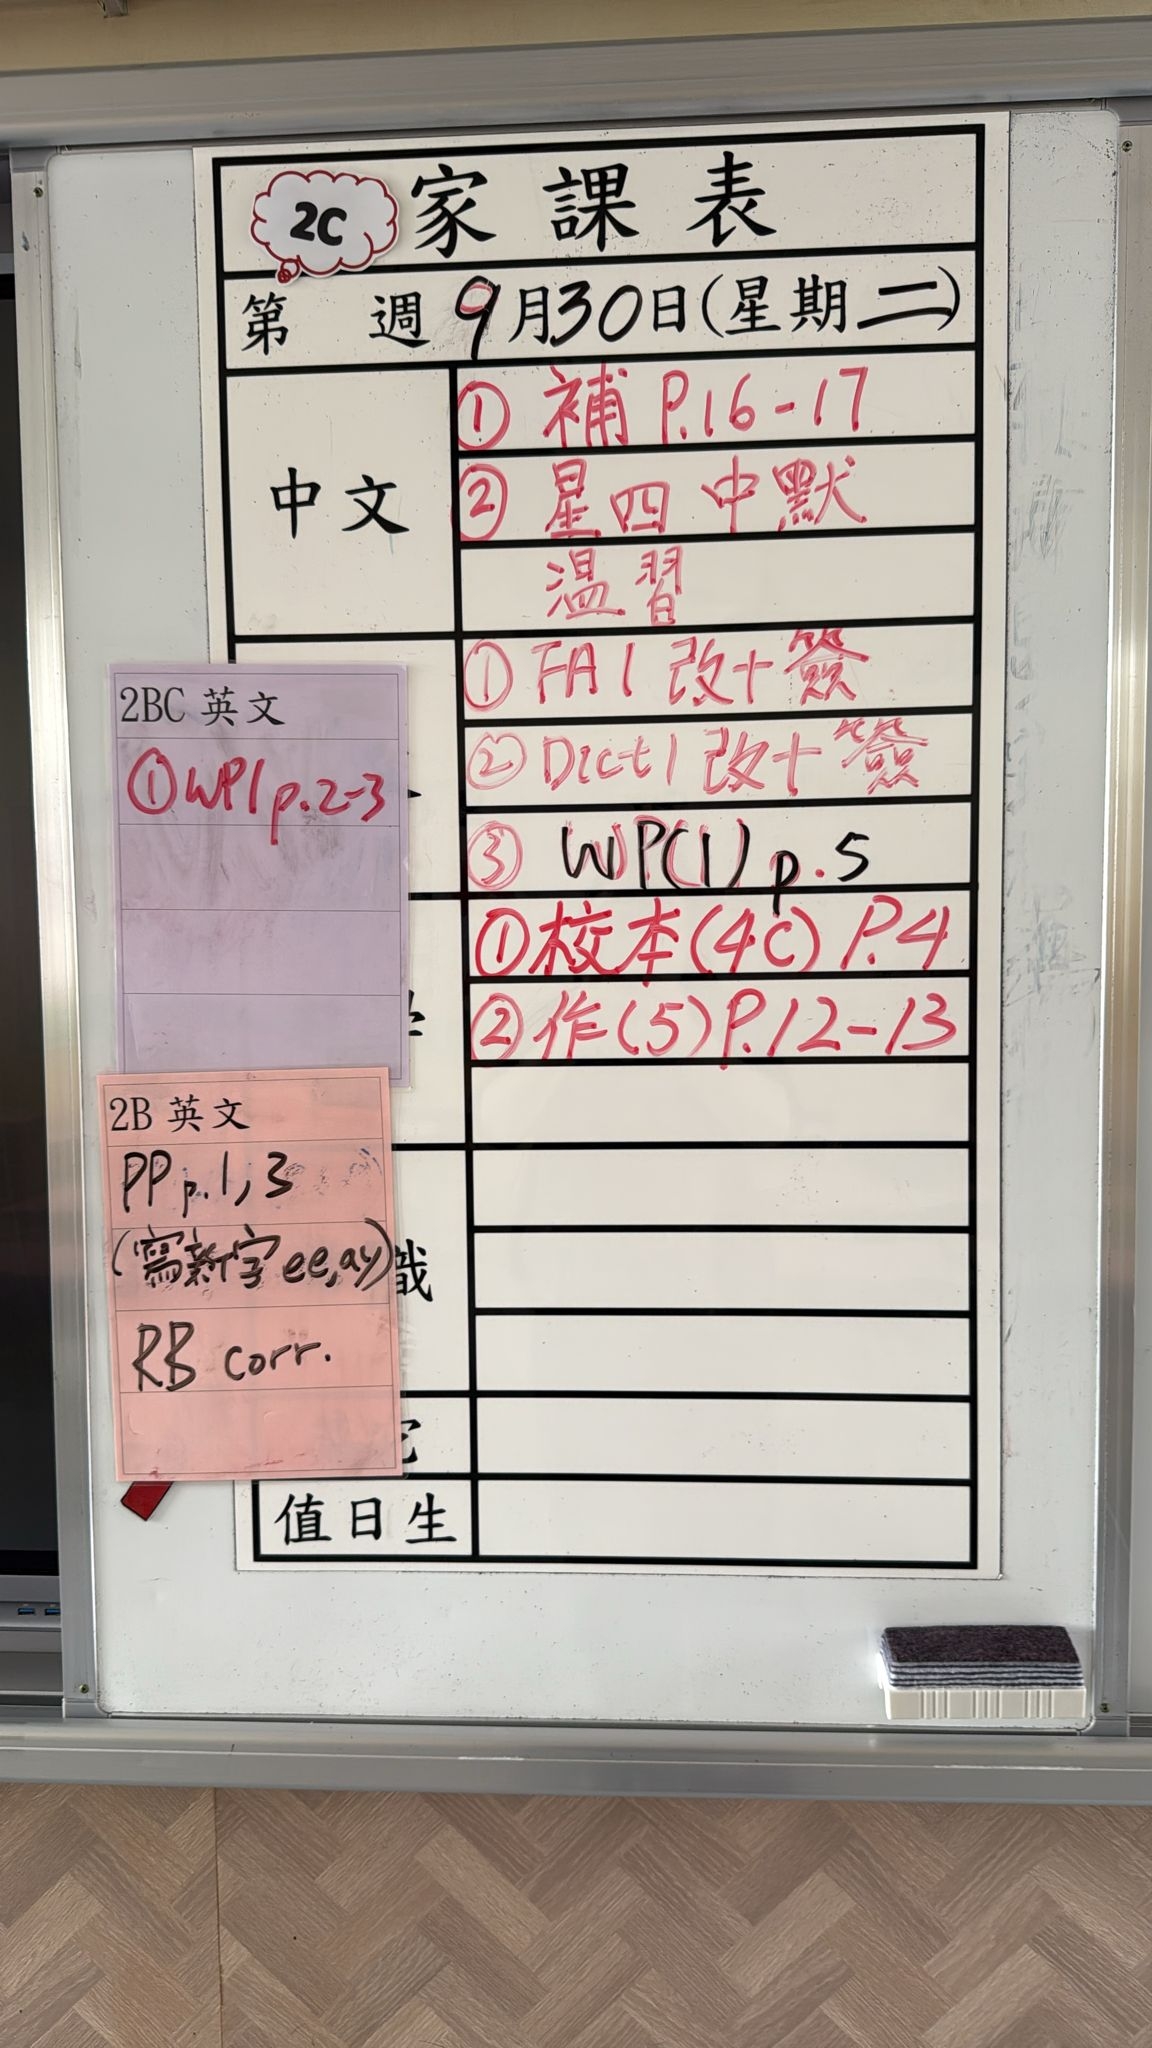 2C
家課表
第 週 9月30日(星期二)
中文
① 補 P.16-17
② 星四 中默
溫習
① FA1 改+簽
② Dict1 改+簽
③ WP(1) p.5
① 校本(4C) P.4
② 作(5) P.12-13
2BC 英文
① WP1 p.2-3
2B 英文
PP p.1,3
(寫新字 ee,ay)
RB corr.
值日生